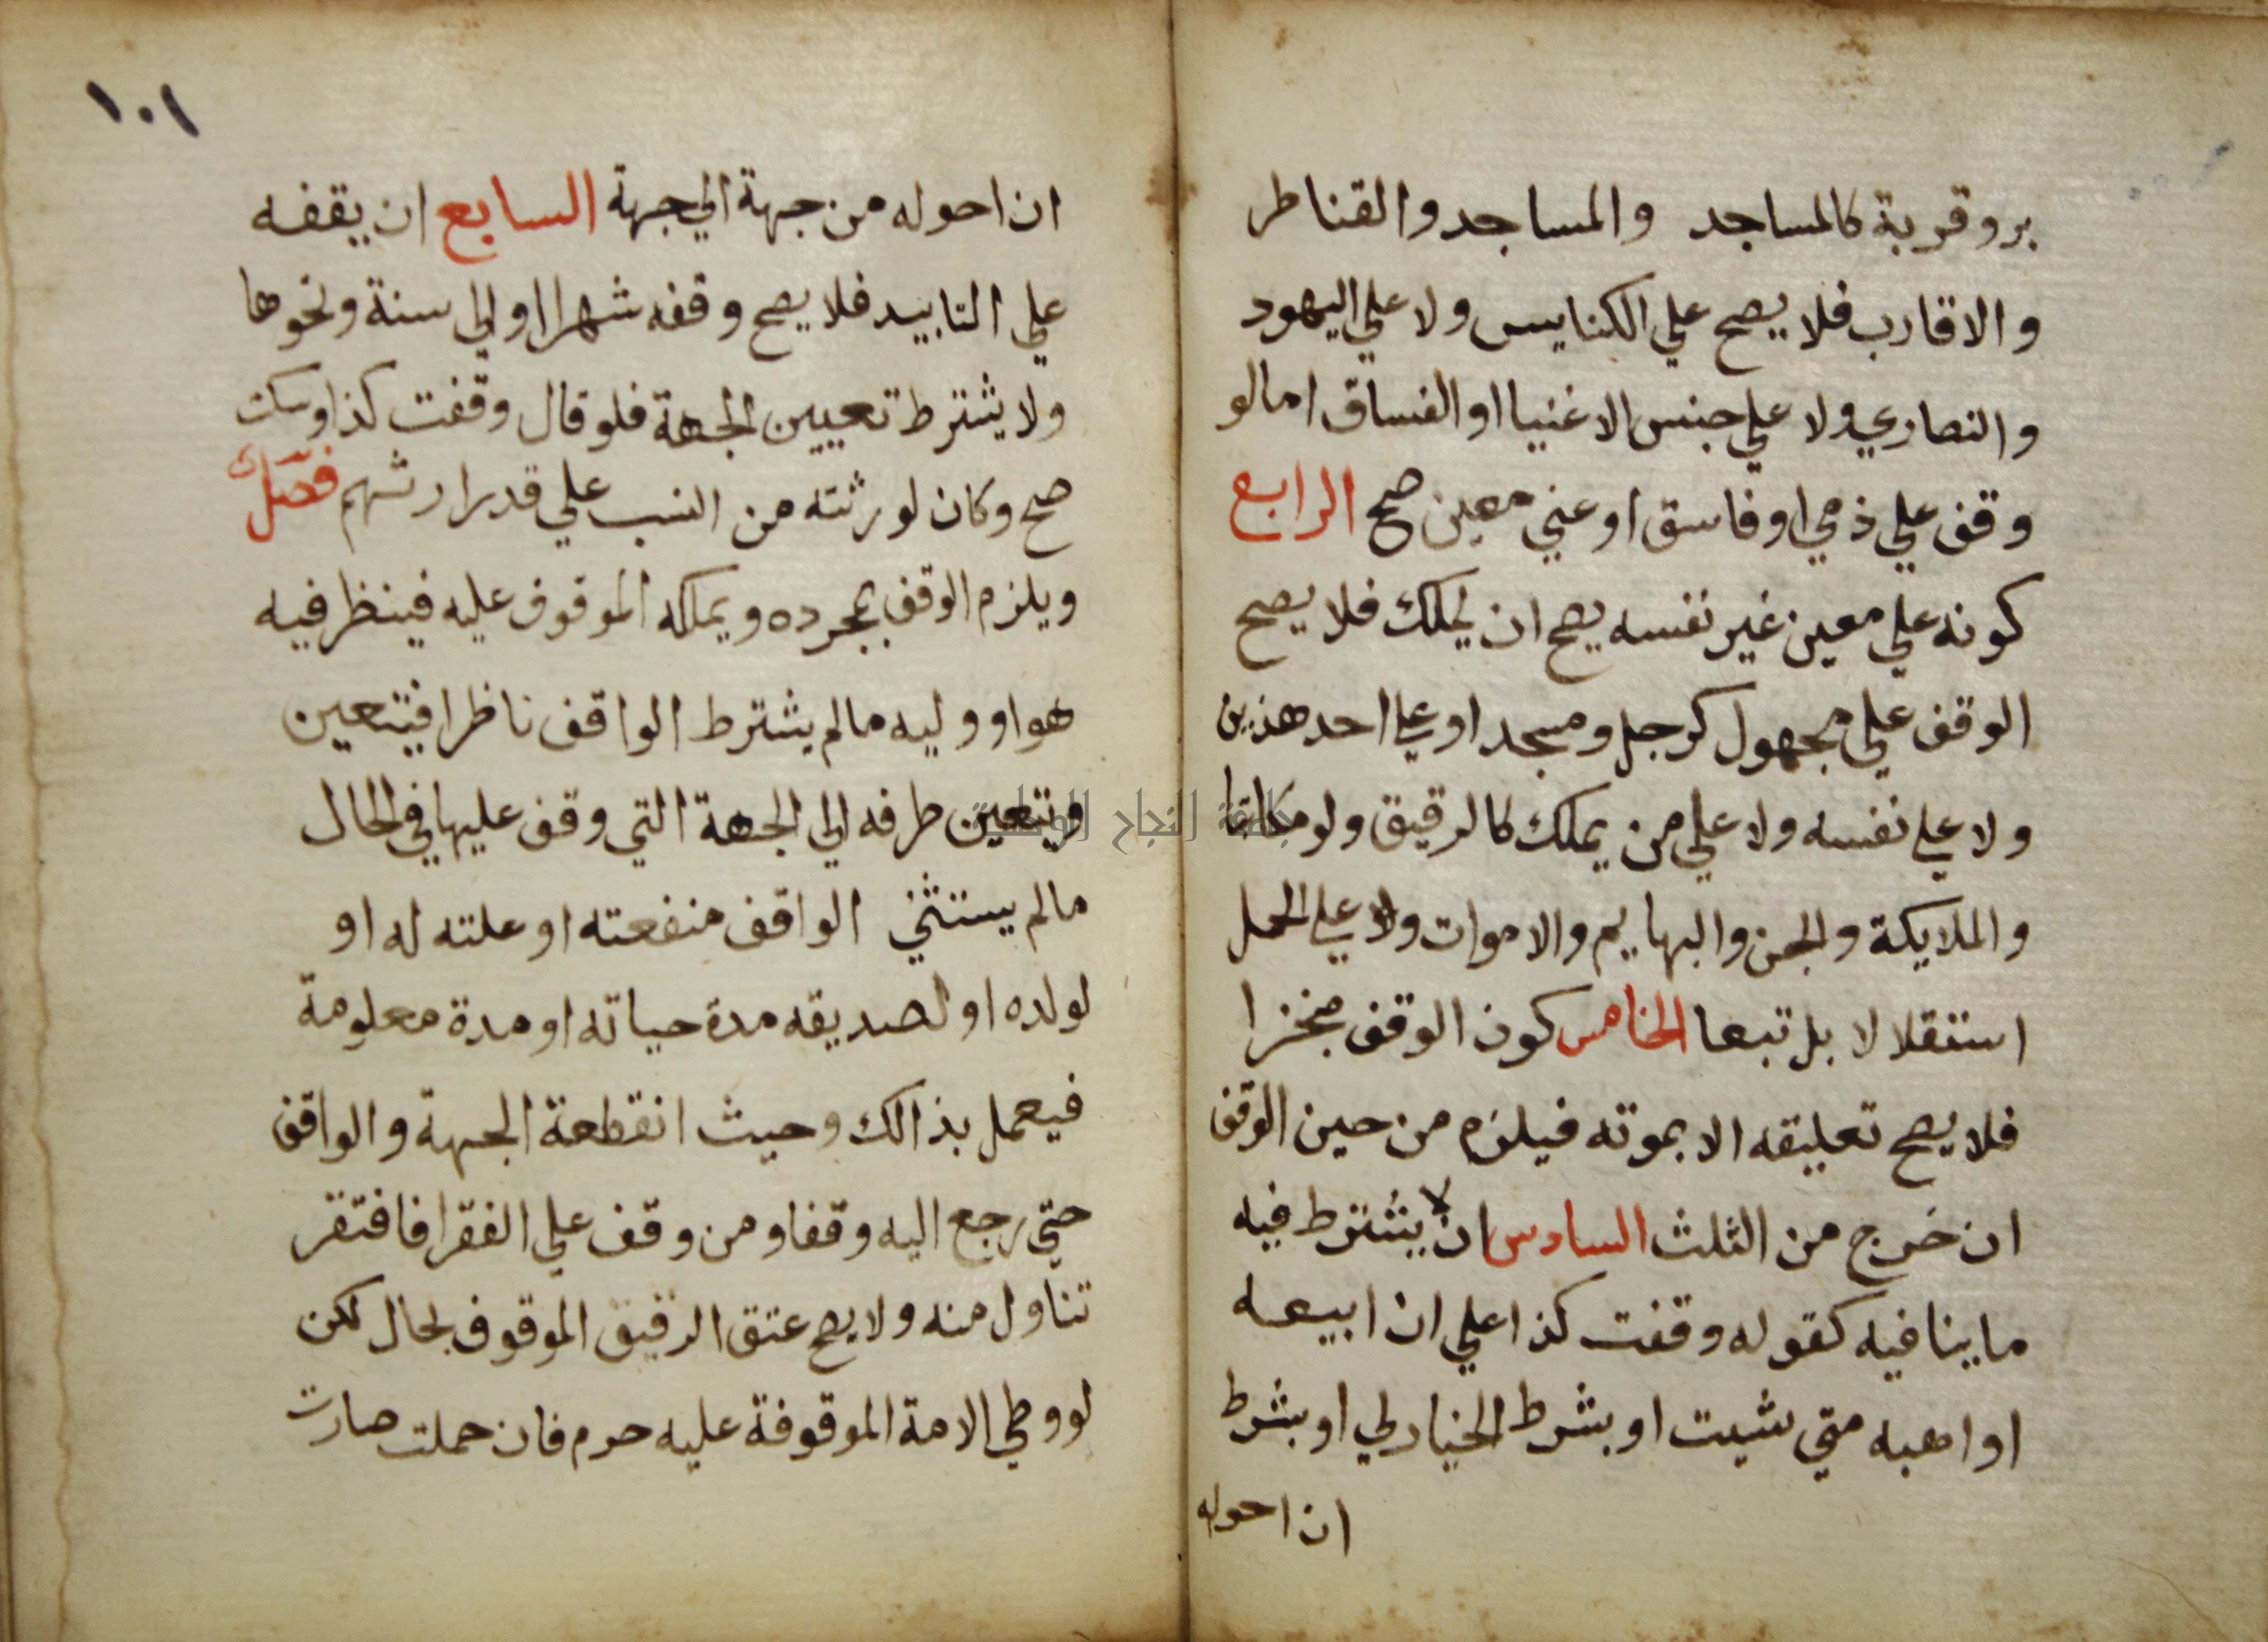 بر وقربة كالمساجد والمساجد والقناطر
والاقارب فلا يصح علي الكنايس ولا علي اليهود
والنصاري ولا علي جنس الاغنيا او الفساق اما لو
وقف علي ذمي او فاسق او غني معين صح الرابع
كونه علي معين غير نفسه يصح ان يملك فلا يصح
الوقف علي مجهول كرجل ومسجد او علي احد هذين
ولا علي نفسه ولا علي من يملك كالرقيق ولو مكاتبا
والملايكة والجن والبهايم والاموات ولا علي الحمل
استقلالا بل تبعا الخامس كون الوقف منجزا
فلا يصح تعليقه الا بموته فيلزم من حين الوقف
ان خرج من الثلث السادس ان لا يشترط فيه
ما ينافيه كقوله وقفت كذا علي ان ابيعه
او اهبه متي شيت او بشرط الخيار لي او بشرط
ان احوله
١٠١
ان احوله من جهة الي جهة السابع ان يقفه
علي التابيد فلا يصح وقفه شهرا او الي سنة ونحوها
ولا يشترط تعيين الجهة فلو قال وقفت كذا وسكت
صح وكان لورثته من النسب علي قدر ارثهم فصل
ويلزم الوقف بمجرده ويملكه الموقوف عليه فينظر فيه
هو او وليه مالم يشترط الواقف ناظرا فيتعين
ويتعين صرفه الي الجهة التي وقف عليها في الحال
مالم يستثني الواقف منفعته او غلته له او
لولده او لصديقه مدة حياته او مدة معلومة
فيعمل بذالك وحيث انقطعة الجهة والواقف
حتي رجع اليه وقفا ومن وقف علي الفقرا فافتقر
تناول منه ولا يصح عتق الرقيق الموقوف بحال لكن
لو وطي الامة الموقوفة عليه حرم فان حملت صارت
جامعة النجاح الوطنية